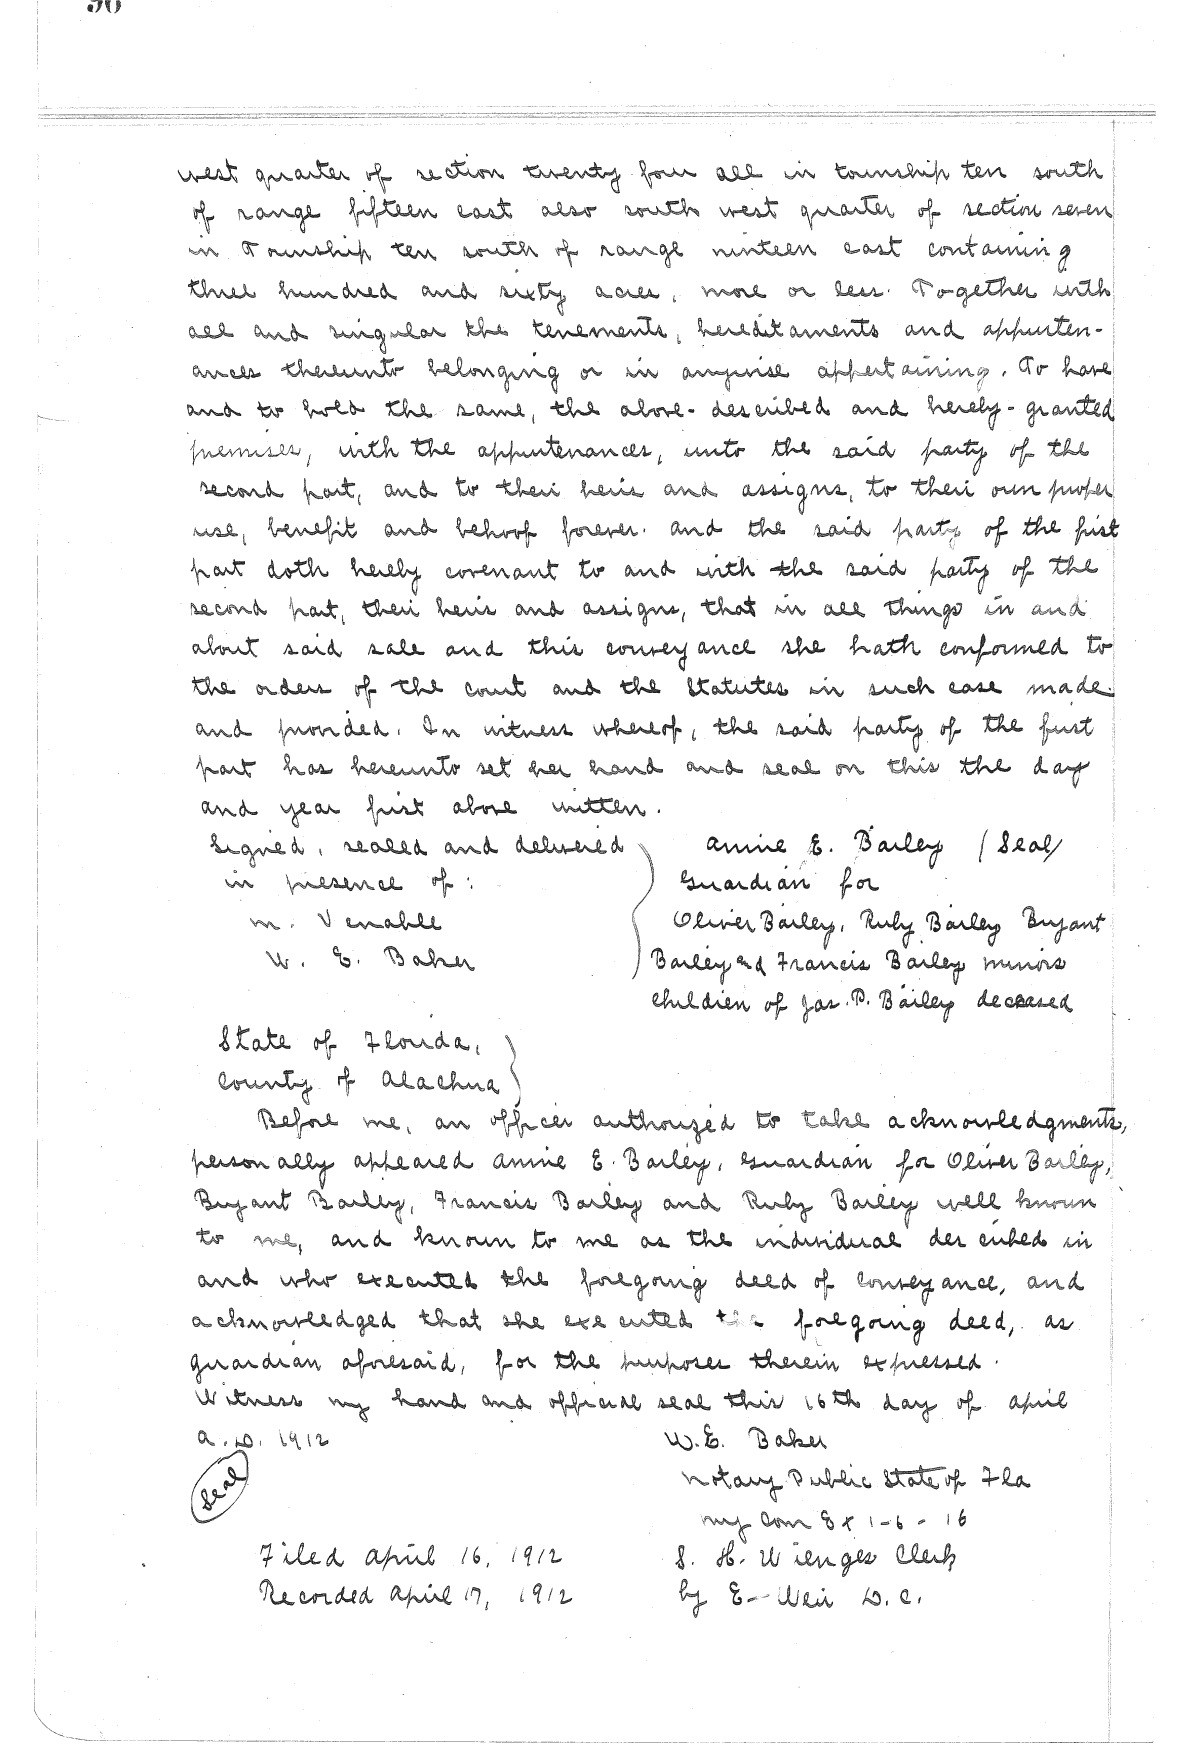 west quarter of section twenty four all in township ten south
of range fifteen east also south west quarter of section seven
in Township ten south of range ninteen east containing
three hundred and sixty acres, more or less. Together with
all and singular the tenements, hereditaments and appurten-
ances thereunto belonging or in anywise appertaining. To have
and to hold the same, the above-described and hereby-granted
premises, with the appurtenances, unto the said party of the
second part, and to their heirs and assigns, to their own proper
use, benefit and behoof forever. and the said party of the first
part doth hereby covenant to and with the said party of the
second part, their heirs and assigns, that in all things in and
about said sale and this conveyance she hath conformed to
the orders of the court and the Statutes in such case made
and provided. In witness whereof, the said party of the first
part has hereunto set her hand and seal on this the day
and year first above written.
Signed, sealed and delivered
in presence of:
M. Venable
W. E. Baker
Annie E. Bailey (Seal)
Guardian for
Oliver Bailey, Ruby Bailey Bryant
Bailey and Francis Bailey minors
children of Jas. P. Bailey deceased
State of Florida,
County of Alachua
Before me, an officer authorized to take acknowledgments,
personally appeared Annie E. Bailey, Guardian for Oliver Bailey,
Bryant Bailey, Francis Bailey and Ruby Bailey well known
to me, and known to me as the individual der cribed in
and who executed the foregoing deed of conveyance, and
acknowledged that she executed the foregoing deed, as
guardian aforesaid, for the purposes therein expressed.
Witness my hand and official seal this 16th day of April
A. D. 1912
W. E. Baker
Seal
Notary Public State of Fla
my Com Ex 1-6-16
Filed April 16, 1912
S. H. Wienges Clerk
Recorded April 17, 1912
by E-- Weir D. C.